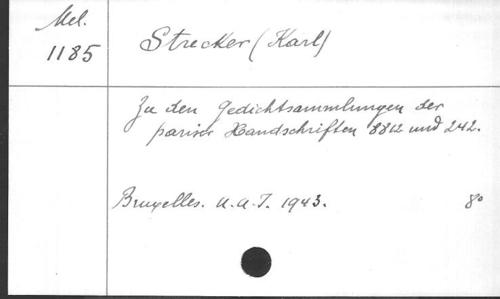 Mel.
1185
Strecker (Karl)
Zu den Gedichtsammlungen der
pariser Handschriften 8812 und 242.
Bruxelles. U.a.I. 1943. 8°